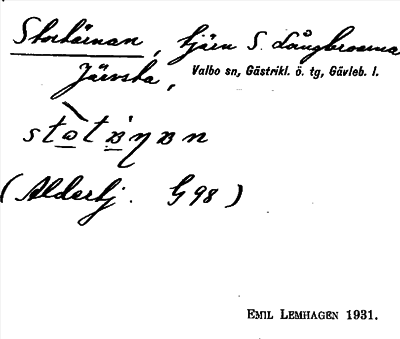 Stortärnan, tjärn S. Långbroarna
Järvsta, Valbo sn, Gästrikl. ö. tg, Gävleb. l.
(Aldertj. G 98)
EMIL LEMHAGEN 1931.